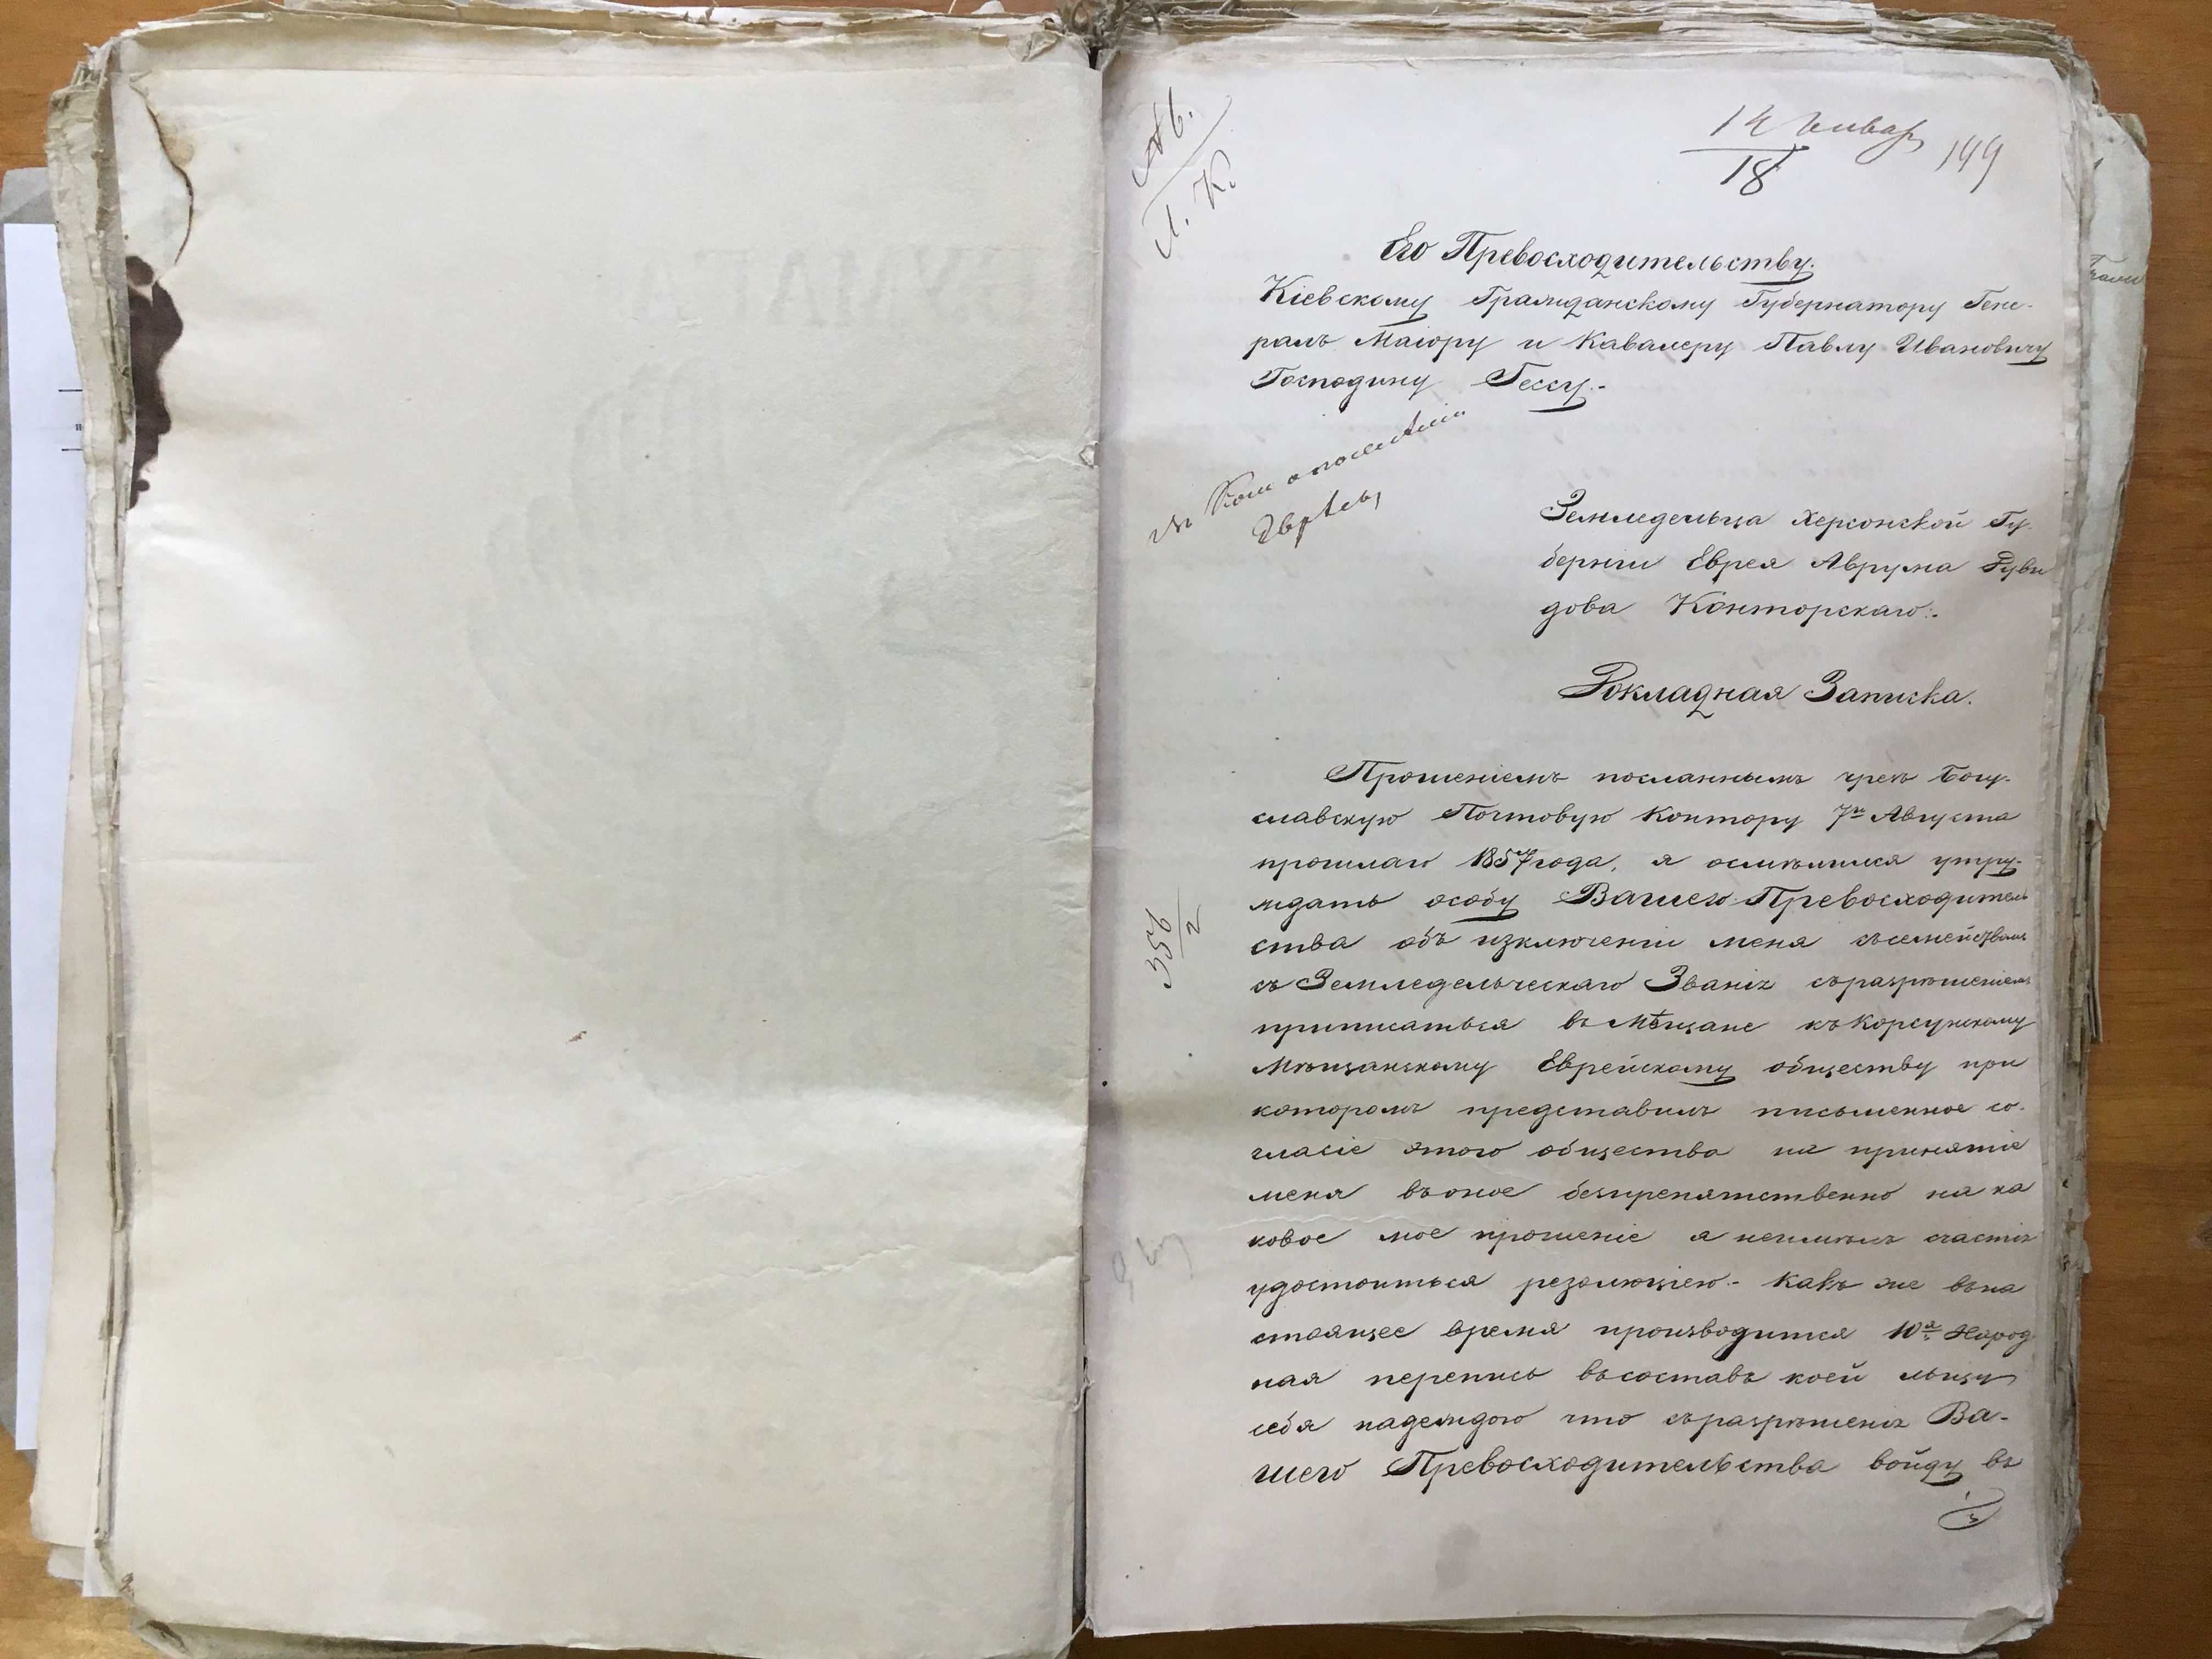 14 Январ
18
149
Л. К.
Его Превосходительству
Кіевскому Гражданскому Губернатору Гене-
ралъ Маіору и Кавалеру Павлу Ивановичу
Господину Гессу.-
Евреевъ
Земледельца Херсонской Гу-
берніи Еврея Аврума Руви
дова Конторскаго:-
Докладная Записка.
Прошеніемъ посланнымъ чрезъ Богу-
славскую Почтовую Контору 7го Августа
прошлаго 1857 года, я осмѣлился утру-
ждать особу Вашего Превосходитель
ства объ изключеніи меня съсемействомъ
съ Земледельческаго Званія съразрѣшеніемъ
приписаться въ Мѣщане къ Корсунскому
Мѣщанскому Еврейскому обществу при
которомъ представилъ письменное со-
гласіе этого общества на принятіе
меня въоное безпрепятственно на ка
ковое мое прошеніе я неимѣлъ счастія
удостоиться резолюціею.- Какъ же вна
стоящее время производится 10я Народ
ная перепись въсоставъ коей льщу
себя надеждою что съразрѣшенія Ва-
шего Превосходительства войду въ
356
2